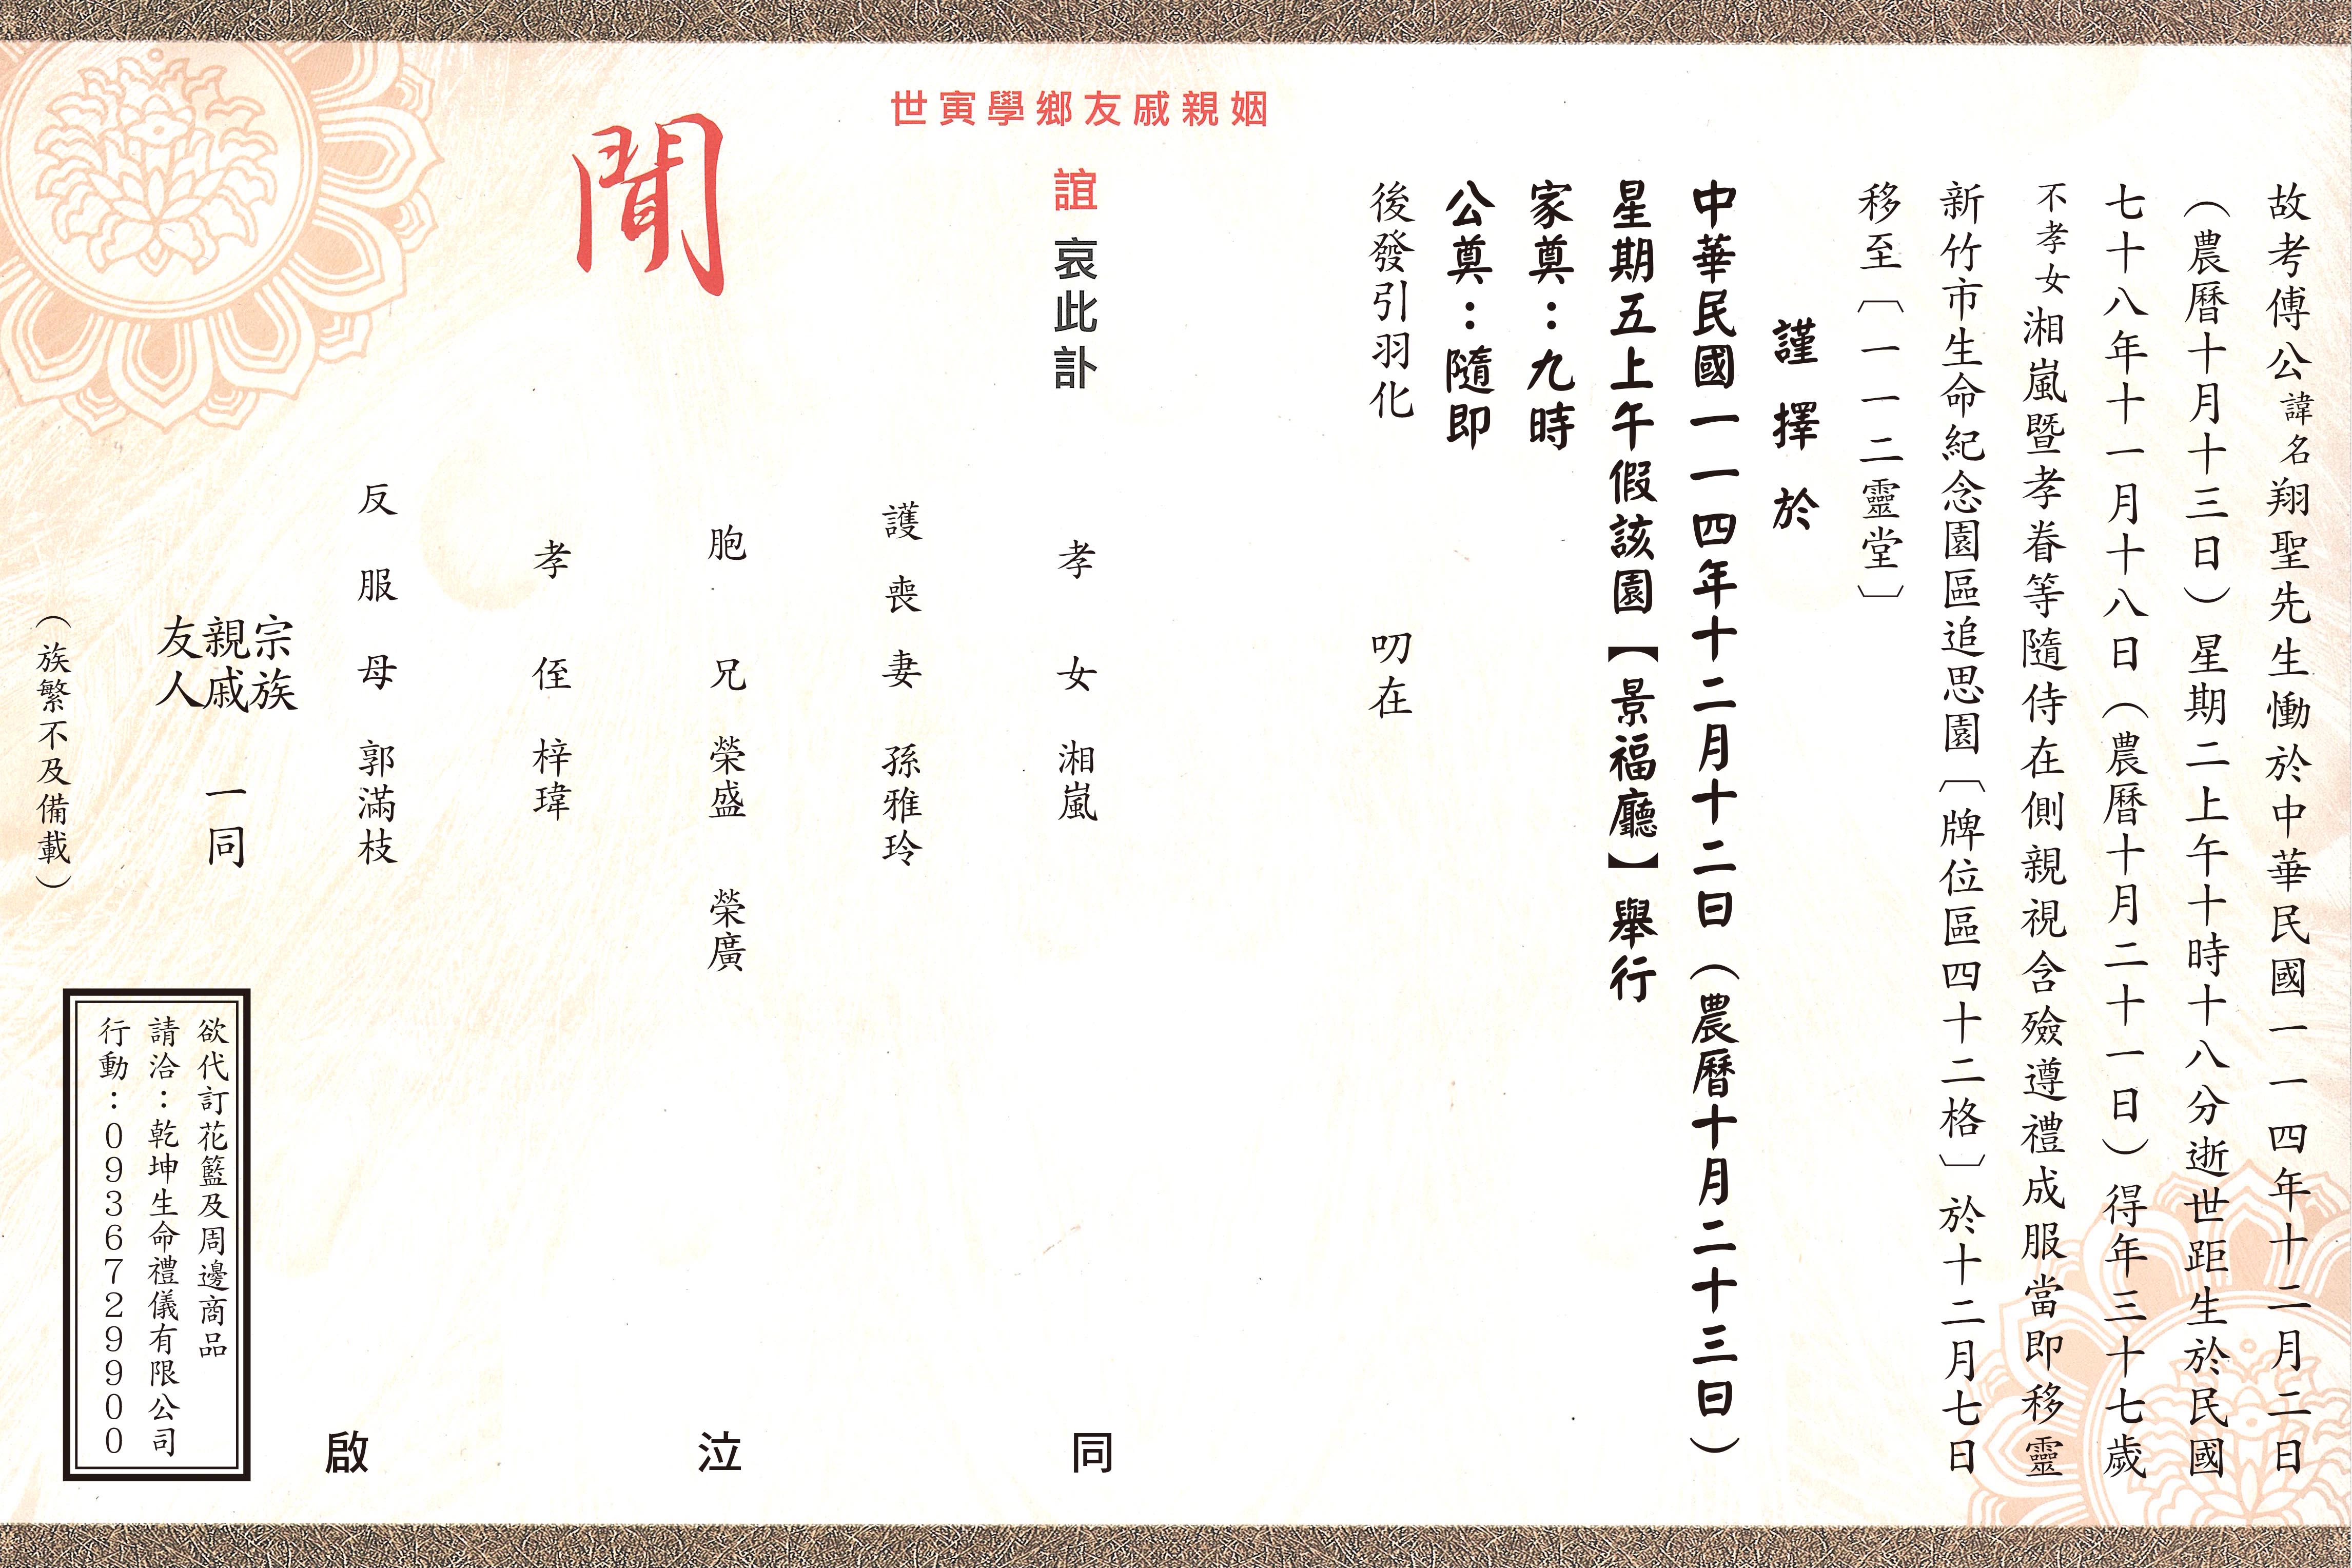 故考傅公諱名翔聖先生慟於中華民國一一四年十二月二日
（農曆十月十三日）星期二上午十時十八分逝世距生於民國
七十八年十一月十八日（農曆十月二十一日）得年三十七歲
不孝女湘嵐暨孝眷等隨侍在側親視含殮遵禮成服當即移靈
新竹市生命紀念園區追思園〔牌位區四十二格〕於十二月七日
移至〔一一二靈堂〕
謹擇於
中華民國一一四年十二月十二日（農曆十月二十三日）
星期五上午假該園【景福廳】舉行
家奠：九時
公奠：隨即
後發引羽化
叨在
姻親戚友鄉學寅世
誼哀此訃
聞
孝女 湘嵐
護喪妻 孫雅玲
胞兄 榮盛 榮廣
孝侄 梓瑋
反服母 郭滿枝
宗族
親戚 一同
友人
（族繁不及備載）
同泣啟
欲代訂花籃及周邊商品
請洽：乾坤生命禮儀有限公司
行動：0936729900